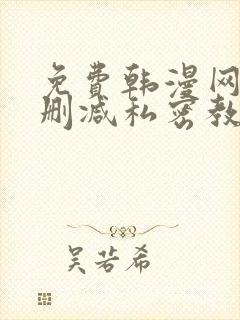 免费韩漫网
删减私密教
吴若希